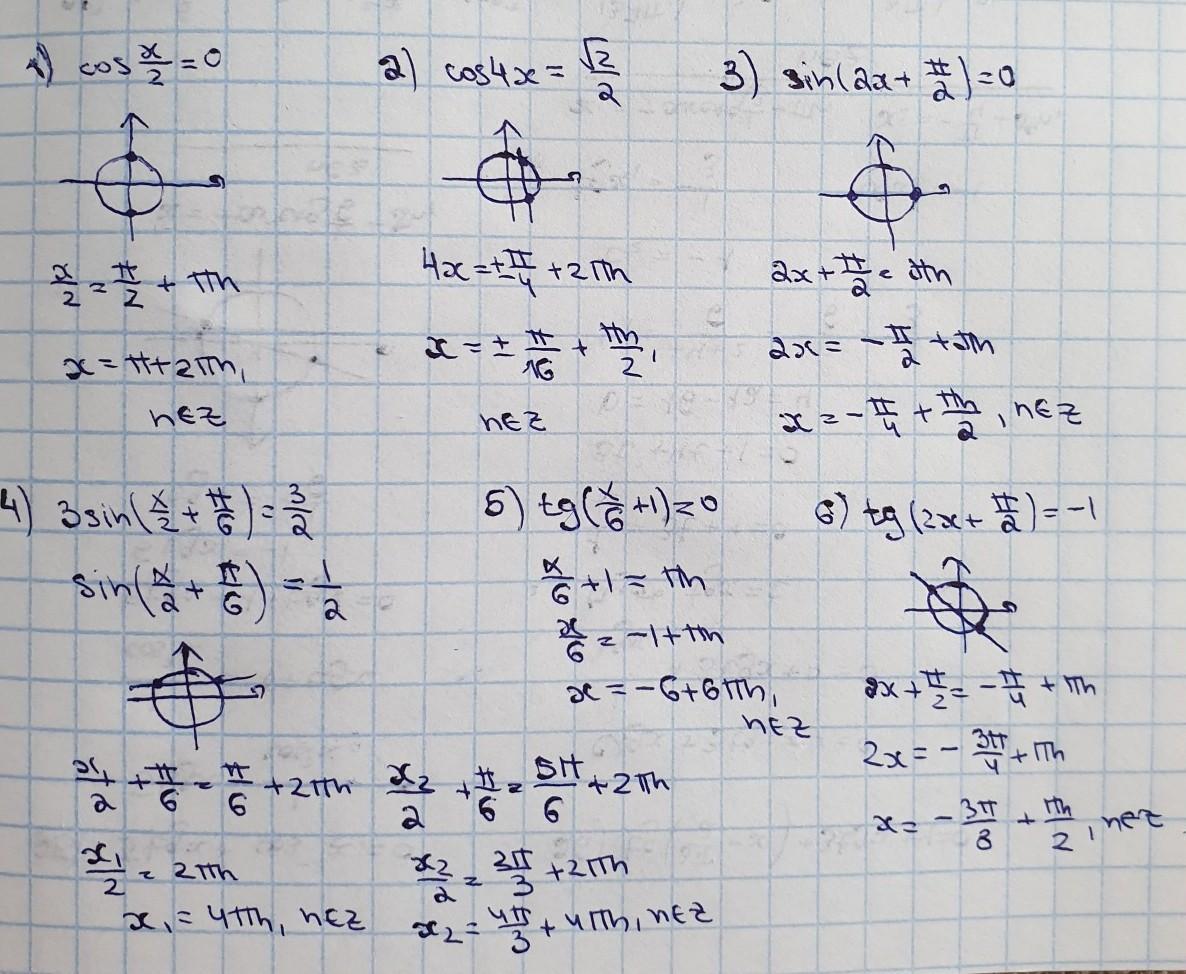 1) cos x/2 = 0
x/2 = π/2 + πn
x = π + 2πn,
n∈Z
2) cos4x = √2/2
4x = ±π/4 + 2πn
x = ± π/16 + πn/2,
n∈Z
3) sin(2x + π/2) = 0
2x + π/2 = πn
2x = - π/2 + πn
x = - π/4 + πn/2, n∈Z
4) 3sin(x/2 + π/6) = 3/2
sin(x/2 + π/6) = 1/2
x₁/2 + π/6 = π/6 + 2πn
x₁/2 = 2πn
x₁ = 4πn, n∈Z
x₂/2 + π/6 = 5π/6 + 2πn
x₂/2 = 2π/3 + 2πn
x₂ = 4π/3 + 4πn, n∈Z
5) tg(x/6 + 1) = 0
x/6 + 1 = πn
x/6 = -1 + πn
x = -6 + 6πn,
n∈Z
6) tg(2x + π/2) = -1
2x + π/2 = - π/4 + πn
2x = - 3π/4 + πn
x = - 3π/8 + πn/2, n∈Z